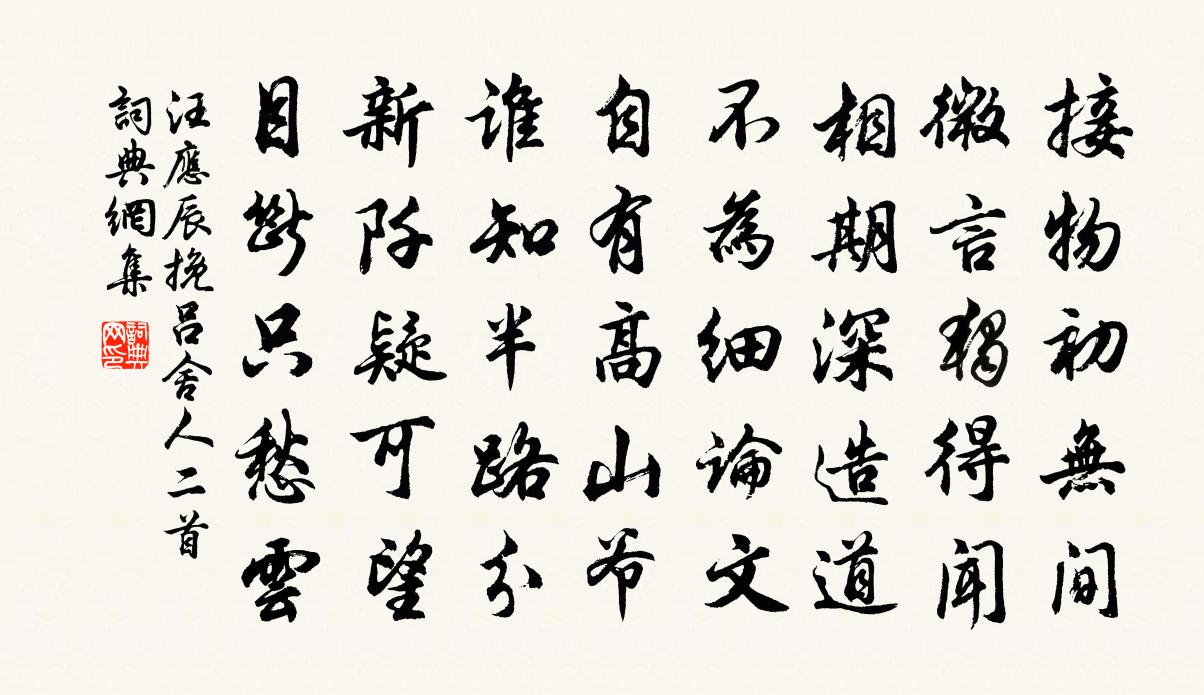 接物初無間
微言獨得聞
相期深造道
不為細論文
自有高山爷
誰知半路分
新阡疑可望
目斷只愁雲
汪應辰挽呂舍人二首
詞典網集
詞典网印